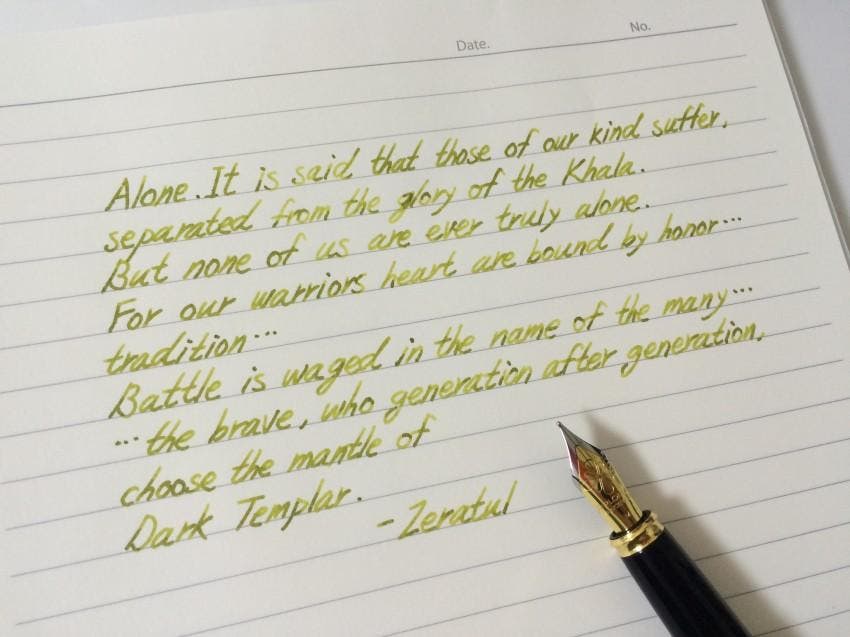 Date.
No.
Alone. It is said that those of our kind suffer,
separated from the glory of the Khala.
But none of us are ever truly alone.
For our warriors heart are bound by honor...
tradition...
Battle is waged in the name of the many...
...the brave, who generation after generation,
choose the mantle of
Dark Templar.
- Zeratul